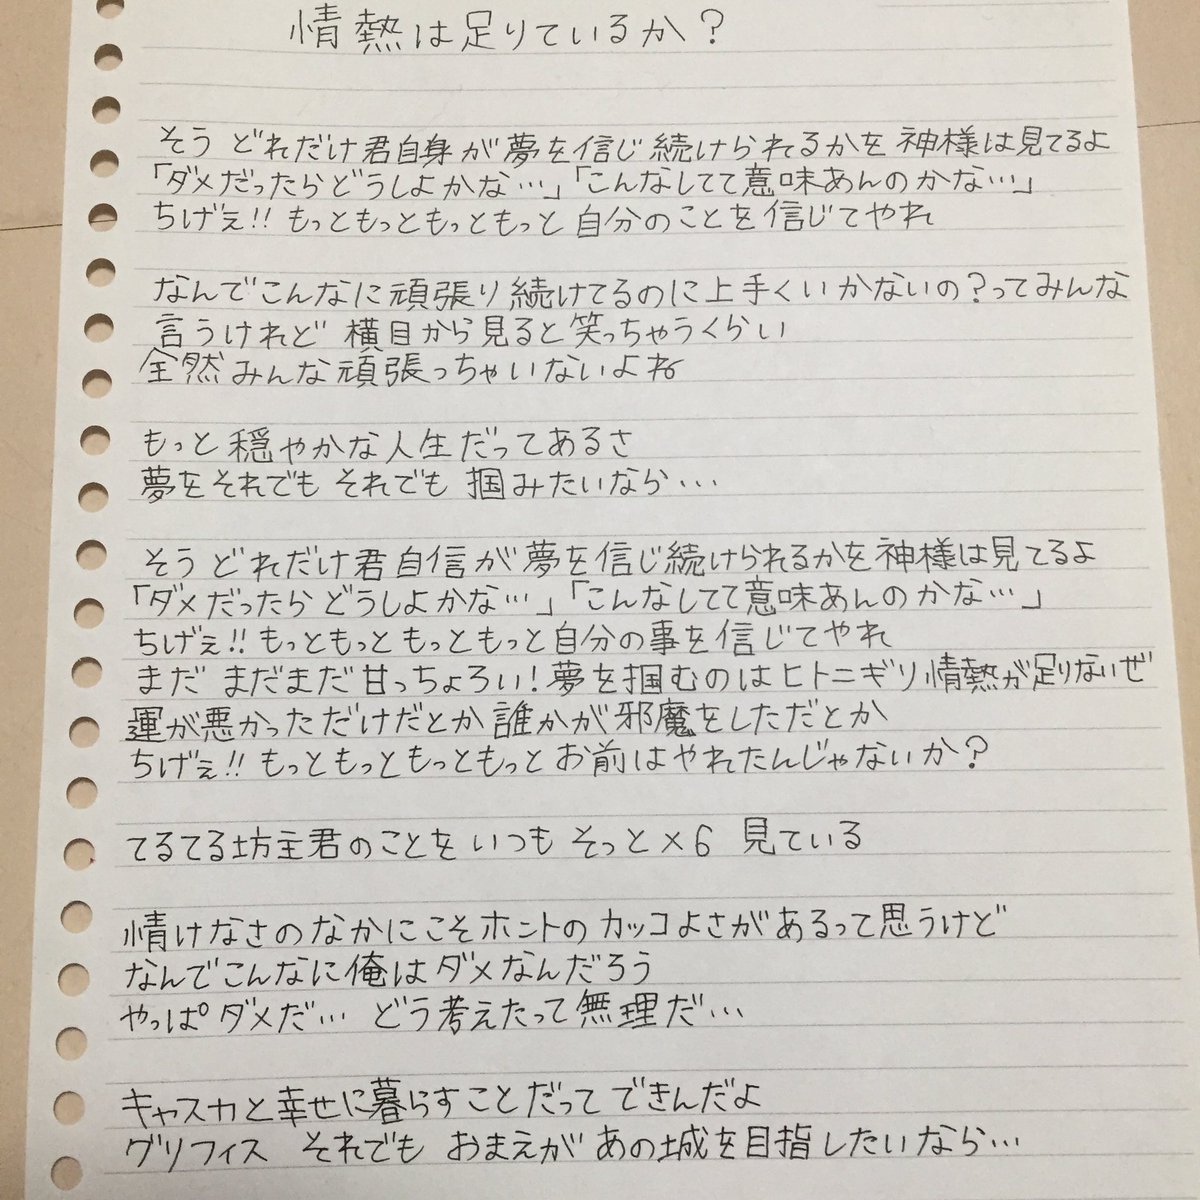 情熱は足りているか?
そう どれだけ君自身が夢を信じ続けられるかを神様は見てるよ
「ダメだったらどうしよかな…」「こんなしてて意味あんのかな…」
ちげぇ!! もっともっともっともっと 自分のことを信じてやれ
なんでこんなに頑張り続けてるのに上手くいかないの?ってみんな
言うけれど 横目から見ると笑っちゃうくらい
全然みんな頑張っちゃいないよね
もっと穏やかな人生だってあるさ
夢をそれでも それでも 掴みたいなら…
そう どれだけ君自信が夢を信じ続けられるかを神様は見てるよ
「ダメだったらどうしよかな…」「こんなしてて意味あんのかな…」
ちげぇ!! もっともっと もっともっと自分の事を信じてやれ
まだ まだまだ甘っちょろい!夢を掴むのはヒトニギリ情熱が足りないぜ
運が悪かっただけだとか 誰かが邪魔をしただとか
ちげぇ!! もっともっともっともっとお前はやれたんじゃないか?
てるてる坊主君のことを いつも そっと×6 見ている
情けなさのなかにこそホントのカッコよさがあるって思うけど
なんでこんなに俺はダメなんだろう
やっぱダメだ… どう考えたって無理だ…
キャスカと幸せに暮らすことだって できんだよ
グリフィス それでも おまえが あの城を目指したいなら…